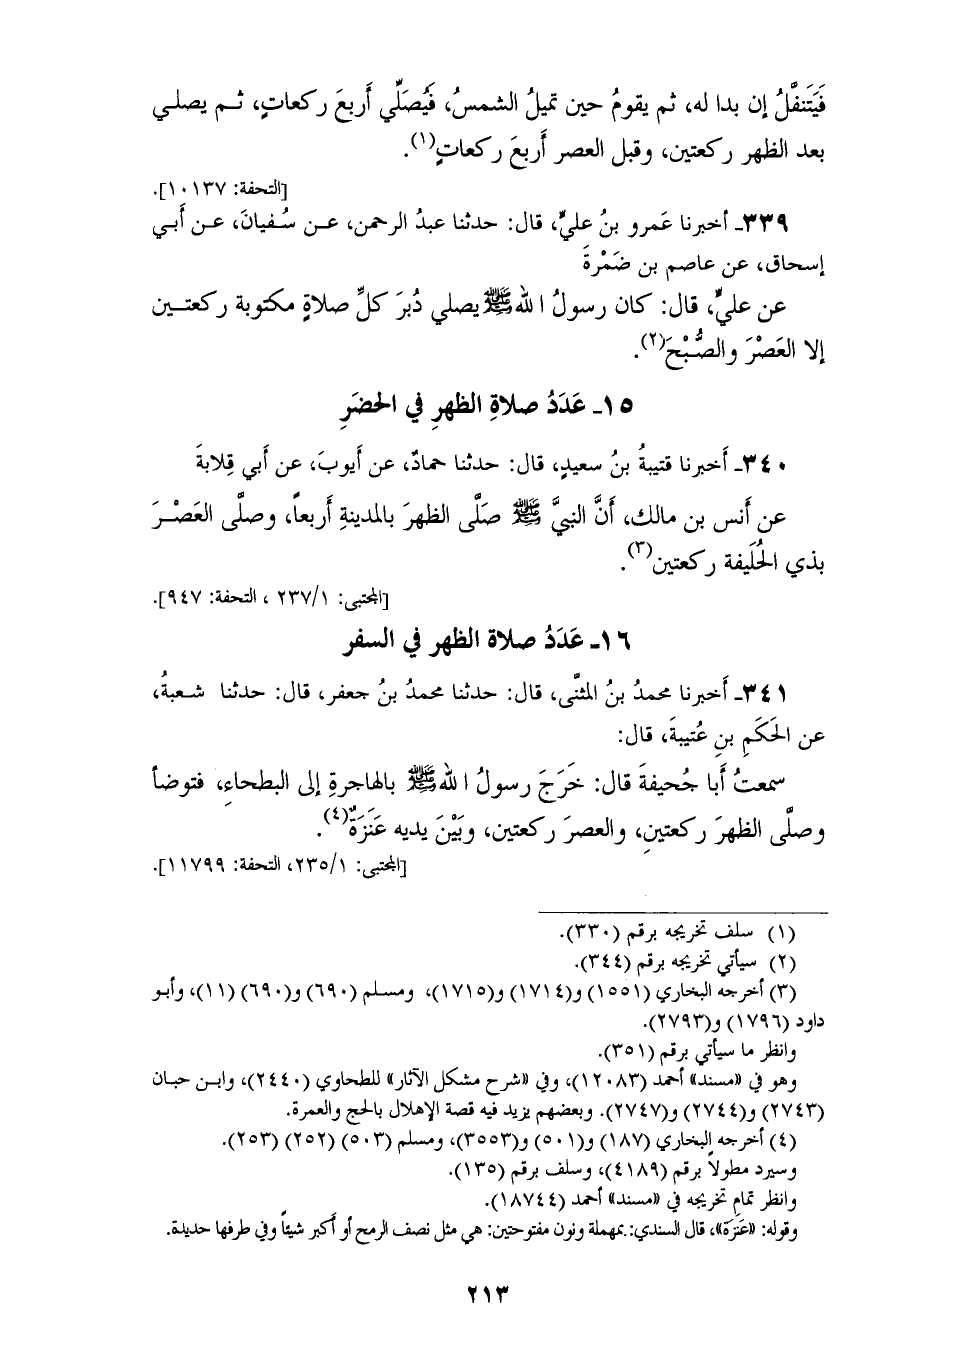 فَيَتَنفَّلُ إن بدا له، ثم يقومُ حين تميلُ الشمسُ، فَيُصَلِّي أَربعَ ركعاتٍ، ثـم يصلـي
بعد الظهر ركعتين، وقبل العصر أَربعَ ركعاتٍ(١).
[التحفة: ١٠١٣٧].
٣٣٩ـ أخبرنا عَمرو بنُ عليٍّ، قال: حدثنا عبدُ الرحمن، عـن سُـفيانَ، عـن أَبـي
إسحاق، عن عاصم بن ضَمْرةَ
عن عليٍّ، قال: كان رسولُ الله ﷺ يصلي دُبرَ كلِّ صلاةٍ مكتوبة ركعتـين
إلا العَصْرَ والصُّبْحَ(٢).
١٥ـ عَدَدُ صلاةِ الظهرِ في الحضَرِ
٣٤٠ـ أَخبرنا قتيبةُ بنُ سعيدٍ، قال: حدثنا حمادٌ، عن أَيوبَ، عن أَبي قِلابةَ
عن أَنس بن مالك، أَنَّ النبيَّ ﷺ صَلَّى الظهرَ بالمدينةِ أَربعاً، وصلَّى العَصْـرَ
بذي الحُلَيفة ركعتين(٣).
[المجتبى: ٢٣٧/١ ، التحفة: ٩٤٧].
١٦ـ عَدَدُ صلاة الظهر في السفر
٣٤١ـ أَخبرنا محمدُ بنُ المثنَّى، قال: حدثنا محمدُ بنُ جعفر، قال: حدثنا شـعبةُ،
عن الحَكَمِ بنِ عُتيبةَ، قال:
سمعتُ أَبا جُحيفةَ قال: خَرَجَ رسولُ الله ﷺ بالهاجرةِ إلى البطحاءِ، فتوضأ
وصلَّى الظهرَ ركعتينِ، والعصرَ ركعتين، وبَيْنَ يديه عَنَزَةٌ(٤).
[المجتبى: ٢٣٥/١، التحفة: ١١٧٩٩].
(١) سلف تخريجه برقم (٣٣٠).
(٢) سيأتي تخريجه برقم (٣٤٤).
(٣) أخرجه البخاري (١٥٥١) و(١٧١٤) و(١٧١٥)، ومسلم (٦٩٠) و(٦٩٠) (١١)، وأبو
داود (١٧٩٦) و(٢٧٩٣).
وانظر ما سيأتي برقم (٣٥١).
وهو في «مسند» أحمد (١٢٠٨٣)، وفي «شرح مشكل الآثار» للطحاوي (٢٤٤٠)، وابـن حبان
(٢٧٤٣) و(٢٧٤٤) و(٢٧٤٧). وبعضهم يزيد فيه قصة الإهلال بالحج والعمرة.
(٤) أخرجه البخاري (١٨٧) و(٥٠١) و(٣٥٥٣)، ومسلم (٥٠٣) (٢٥٢) (٢٥٣).
وسيرد مطولاً برقم (٤١٨٩)، وسلف برقم (١٣٥).
وانظر تمام تخريجه في «مسند» أحمد (١٨٧٤٤).
وقوله: «عَنَزَة»، قال السندي: بمهملة ونون مفتوحتين: هي مثل نصف الرمح أو أكبر شيئاً وفي طرفها حديدة.
٢١٣